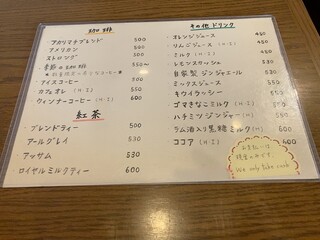 珈琲
アカリマチブレンド 500
アメリカン 500
ストロング 500
季節の珈琲 550〜
アイスコーヒー 550
カフェオレ (H・I) 550
ウィンナーコーヒー (H・I) 600
紅茶
ブレンドティー 500
アールグレイ 530
アッサム 530
ロイヤルミルクティー 600
その他ドリンク
オレンジジュース 450
りんごジュース (H・I) 450
ミルク (H・I) 450
レモンスカッシュ 530
自家製ジンジャエール 530
ミックスジュース 550
キウイラッシー 550
ゴマきなこミルク (H・I) 600
ハチミツジンジャー (H) 600
ラム酒入り黒糖ミルク (H) 600
ココア (H・I) 600
お支払いは、
現金のみです。
We only take cash